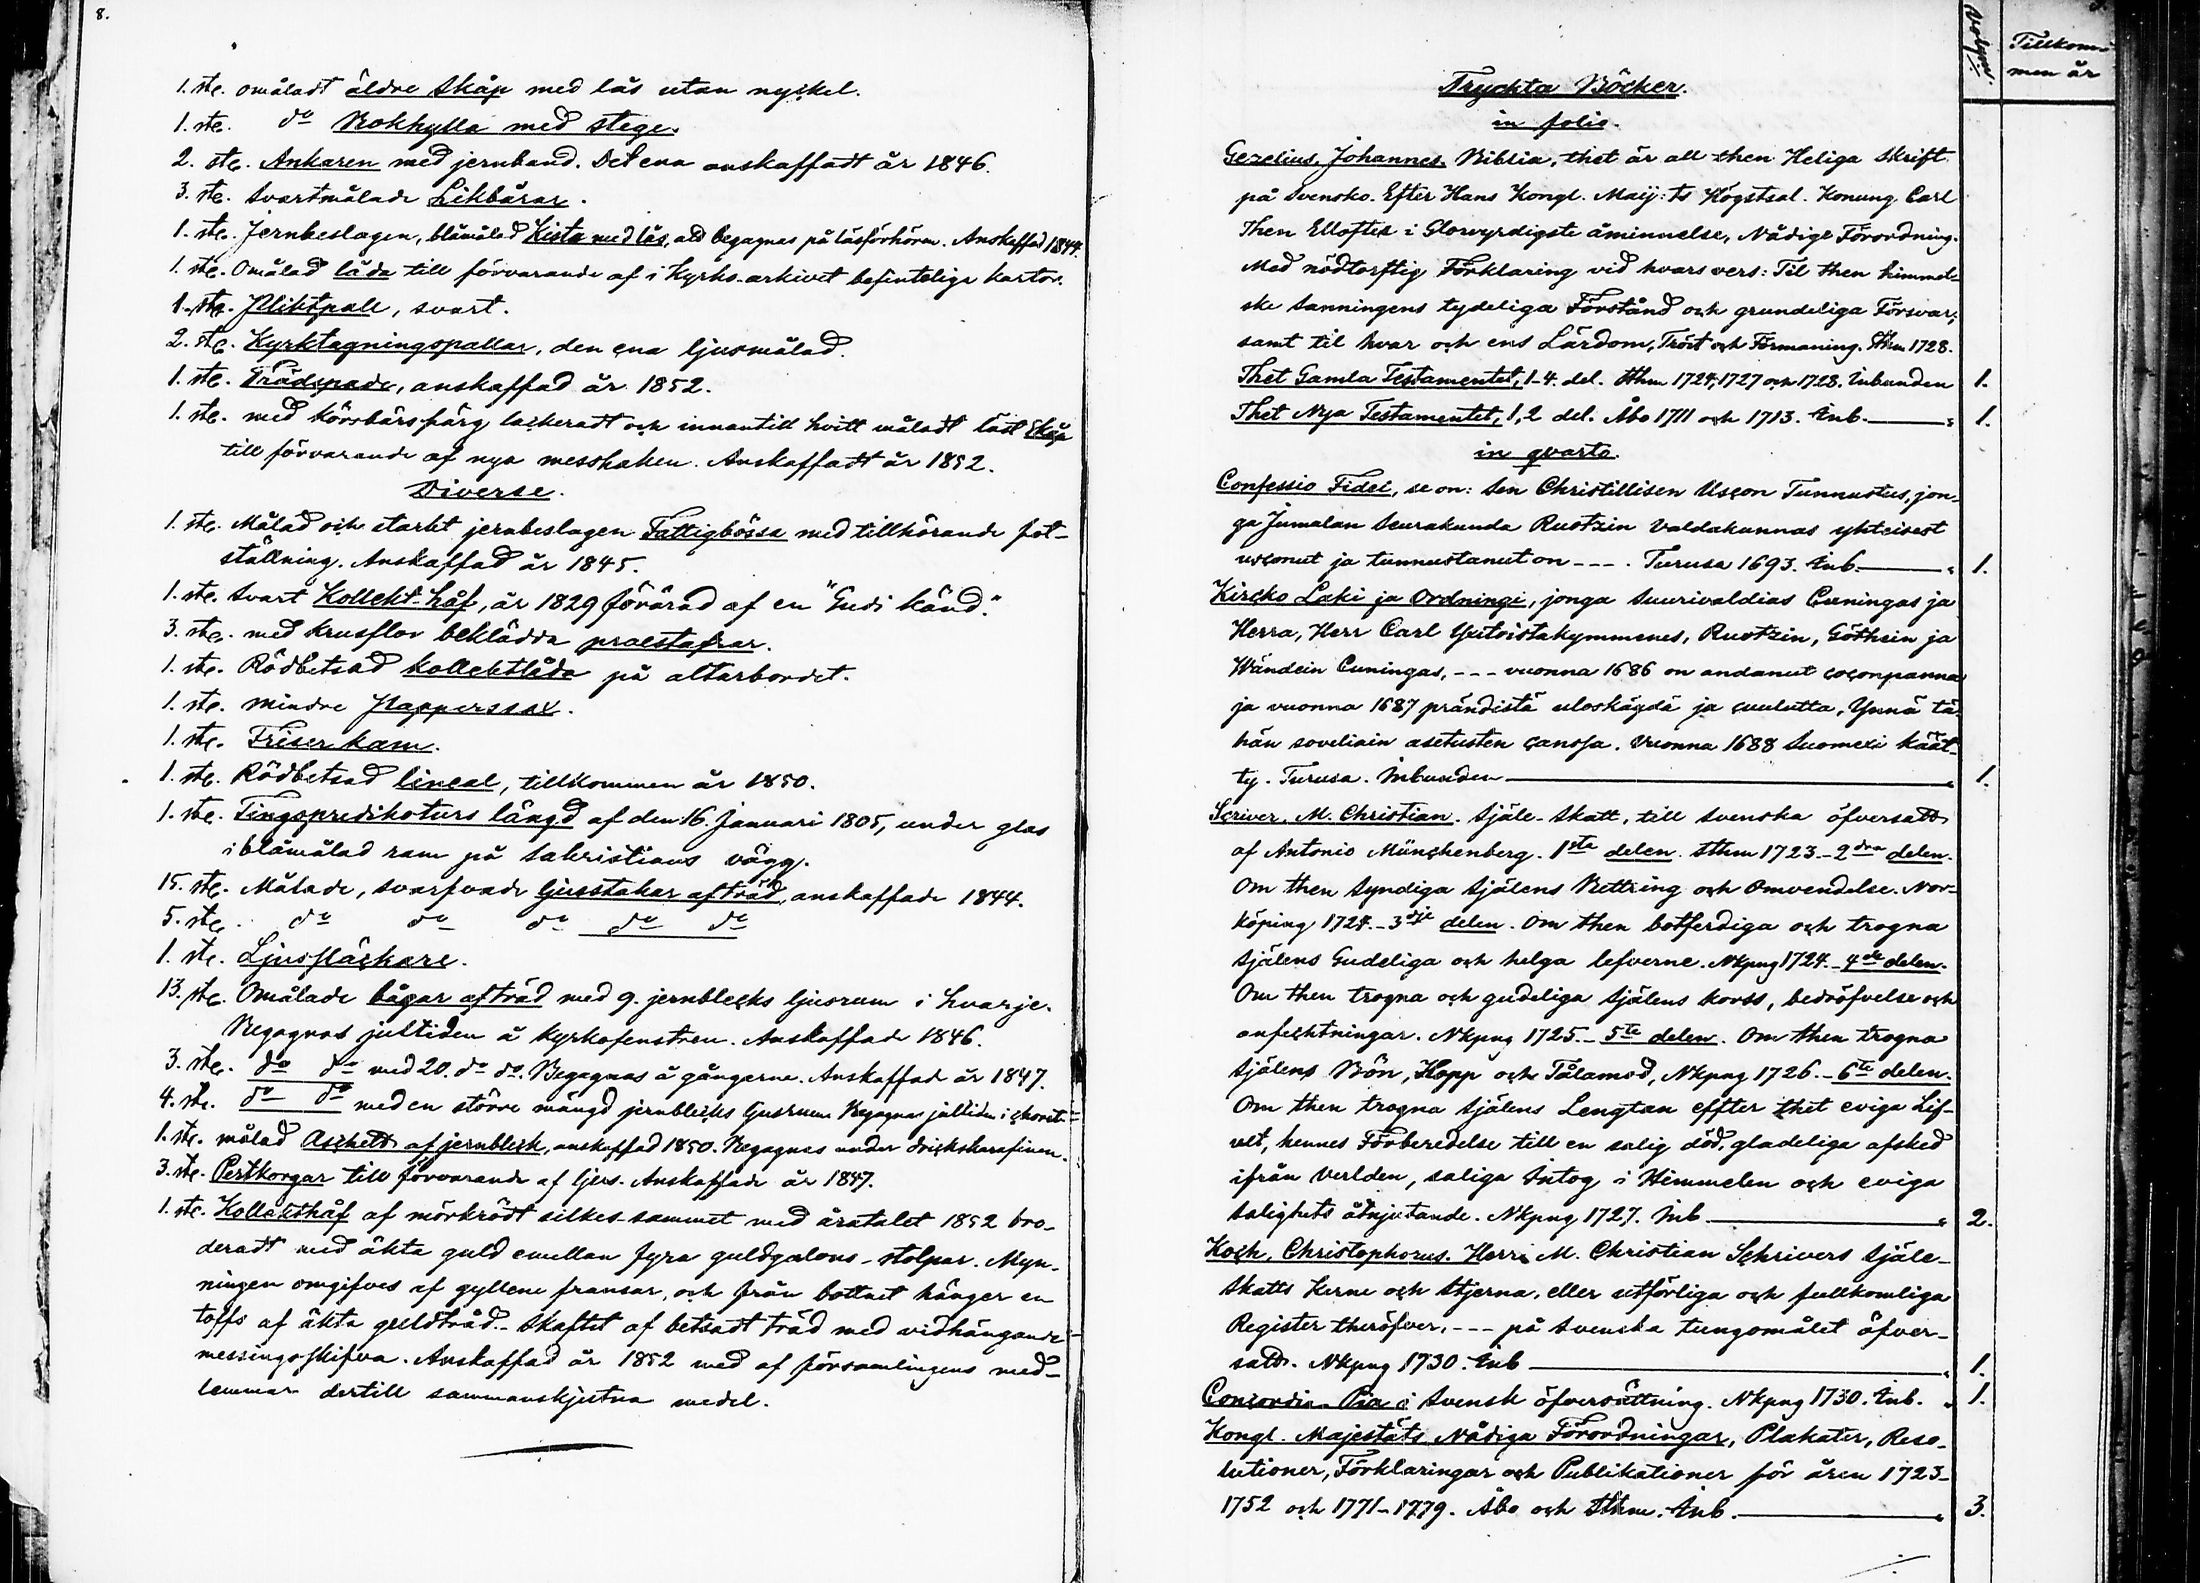 8.
1. st. omåladt äldre skåp med lås utan nyckel.
1. st. do Bokhylla med stege.
2. st. Ankaren med jernband. Det ena anskaffadt år 1846.
3. st. Svartmålade Likbårar.
1. st. Jernbeslagen, blåmålad Kista med lås, att begagnas på läsförhören. Anskaffad 1844.
1. st. Omålad låda till förvarande af i Kyrko-arkivet befinteliga kartor.
1. st. Pliktpall, svart.
2. st. Kyrktagningspallar, den ena ljusmålad.
1. st. Trädspade, anskaffad år 1852.
1. st. med körsbärsfärg lackeradt och innantill hvitt måladt låst Skåp
till förvarande af nya messhaken. Anskaffadt år 1852.
Diverse.
1. st. Målad och starkt jernbeslagen Fattigbössa med tillhörande fot-
ställning. Anskaffad år 1845.
1. st. Svart Kollekt-håf, år 1829 förärad af en "Gudi känd."
3. st. med krusflor beklädda praestafrar.
1. st. Rödbetsad kollektlåda på altarbordet.
1. st. mindre Papperssax.
1. st. Friser kam.
1. st. Rödbetsad lineal, tillkommen år 1850.
1. st. Tingspredikoturs längd af den 16. Januari 1805, under glas
i blåmålad ram på Sakristians vägg.
15. st. Målade, svarfvade ljusstakar af träd, anskaffade 1844.
5. st. do do do do do
1. st. Ljussläckare.
13. st. Omålade bågar af träd med 9. jernblecks ljusrum i hvarje.
Begagnas jultiden å kyrkofenstren. Anskaffade 1846.
3. st. do do med 20. do do. Begagnas å gångerne. Anskaffade år 1847.
4. st. do do med en större mängd jernblecks ljusrum Begagnas jultiden i choret.
1. st. målad Aschett af jernbleck, anskaffad 1850. Begagnas under dricks karafinen.
3. st. Pertkorgar till förvarande af ljus. Anskaffade år 1847.
1. st. Kollekthåf af mörkrödt silkes-sammet med årstalet 1852 bro-
deradt med äkta guld emellan fyra guldgalons-stolpar. Myn-
ningen omgifves af gyllene fransar, och från bottnet hänger en
toffs af äkta guldtråd.- Skaftet af betsadt träd med vidhängande
messingsskifva. Anskaffad år 1852 med af församlingens med-
lemmar dertill sammanskjutna medel.
Volym.
Tillkom-
men år
Tryckta Böcker.
in folio.
Gezelius, Johannes. Biblia, thet är all then Heliga Skrift
på Svensko. Efter Hans Kongl. Maij:ts Högstsal. Konung Carl
Then Elloftes i Glorvyrdigste åminnelse, Nådige Förordning.
Med nödtorftig Förklaring vid hvars vers: Til then himmel-
ske sanningens tydeliga Förstånd och grundeliga Försvar;
samt til hvar och ens Lärdom, Tröst och Förmaning. Sthm 1728.
Thet Gamla Testamentet, 1-4. del. Sthm 1724, 1727 och 1728. Inbunden 1.
Thet Nya Testamentet, 1, 2 del. Åbo 1711 och 1713. Inb. 1.
in qvarto.
Confessio Fidei, se on: Sen Christillisen Usçon Tunnustus, jon-
ga Jumalan Seurakunda Ruotzin Valdakunnas yhteisest
usçonut ja tunnustanut on ---. Turusa 1693. Inb. 1.
Kircko Laki ja Ordningi, jonga Suurivaldias Cuningas ja
Herra, Herr Carl Yxitoistakymmenes, Ruotzin, Göthein ja
Wändein Cuningas, --- vuonna 1686 on andanut çoçonpanna
ja vuonna 1687 prändistä uloskäydä ja çuulutta, Ynnä tä-
hän soveliain asetusten çansa. Vuonna 1688 Suomexi käät-
ty. Turusa. Inbunden 1.
Scriver, M. Christian. Själe-Skatt, till Svenska öfversatt
af Antonio Münchenberg. 1sta delen. Sthm 1723.- 2dra delen.
Om then Syndiga Själens Bettring och Omvendelse. Nor-
köping 1724.- 3dje delen. Om then botferdiga och trogna
Själens Gudeliga och helga lefverne. Nkpng 1724.- 4de delen.
Om then trogna och gudeliga Själens korss, bedröfvelse och
anfechtningar. Nkpng 1725.- 5te delen. Om then trogna
Själens Bön, Hopp och Tålamod, Nkpng 1726.- 6te delen.
Om then trogna Själens Lengtan effter thet eviga Lif-
vet, hennes Förberedelse till en salig död, gladeliga afsked
ifrån Verlden, saliga Intog i Himmelen och eviga
Salighets åtnjutande. Nkpng 1727. Inb 2.
Koch, Christophorus. Herr M. Christian Schrivers Själe-
Skatts Kerne och Stjerna, eller utförliga och fullkomliga
Register theröfver, --- på Svenska tungomålet öfver-
satt. Nkpng 1730. Inb 1.
Concordia Pia i Svensk öfversättning. Nkpng 1730. Inb. 1.
Kongl. Majestäts Nådiga Förordningar, Plakater, Reso-
lutioner, Förklaringar och Publikationer för åren 1723-
1752 och 1771-1779. Åbo och Sthm. Inb. 3.